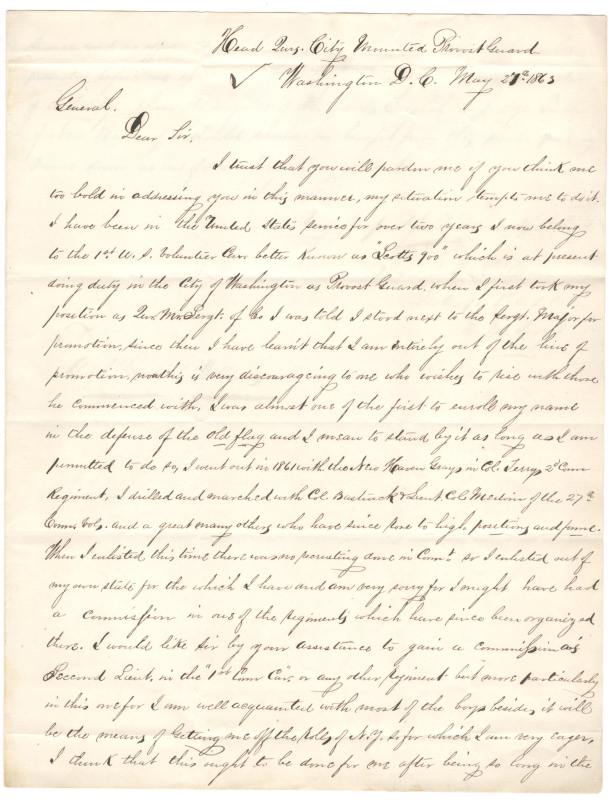 Head Qurs. City Mounted Provost Guard
Washington D. C. May 27th 1863
General.
Dear Sir,
I trust that you will pardon me if you think me
too bold in addressing you in this manner, my situation tempts me to do it.
I have been in the United States service for over two years I now belong
to the 1st U. S. Volunteer Cav. better known as "Scotts 900" which is at present
doing duty in the City of Washington as Provost Guard. when I first took my
position as Qur. Mr. Sergt. of Co I was told I stood next to the Sergt. Major for
promotion, since then I have learn't that I am entirely out of the line of
promotion, now this is very discourageing to me who wishes to rise with those
he commenced with, I was almost one of the first to enroll my name
in the defense of the old flag and I mean to stand by it as long as I am
permitted to do so, I went out in 1861 with the New Haven Grays in Cl. Terrys 2d Conn
Regiment, I drilled and marched with Cl. Bostwick & Lieut. Col. Merwin of the 27th
Conn. Vols. and a great many others who have since rose to high positions and fame.
When I enlisted this time there was no recruiting done in Connt. so I enlisted out of
my own state for the which I have and am very sorry for I might have had
a commission in one of the regiments which have since been organized
there. I would like sir by your assistance to gain a commission as
Seccond Lieut. in the "1st Conn Cav." or any other regiment but more particularly
in this one for I am well acquainted with most of the boys besides it will
be the means of getting me off the roles of N.Y. S. for which I am very eager,
I think that this ought to be done for me after being so long in the